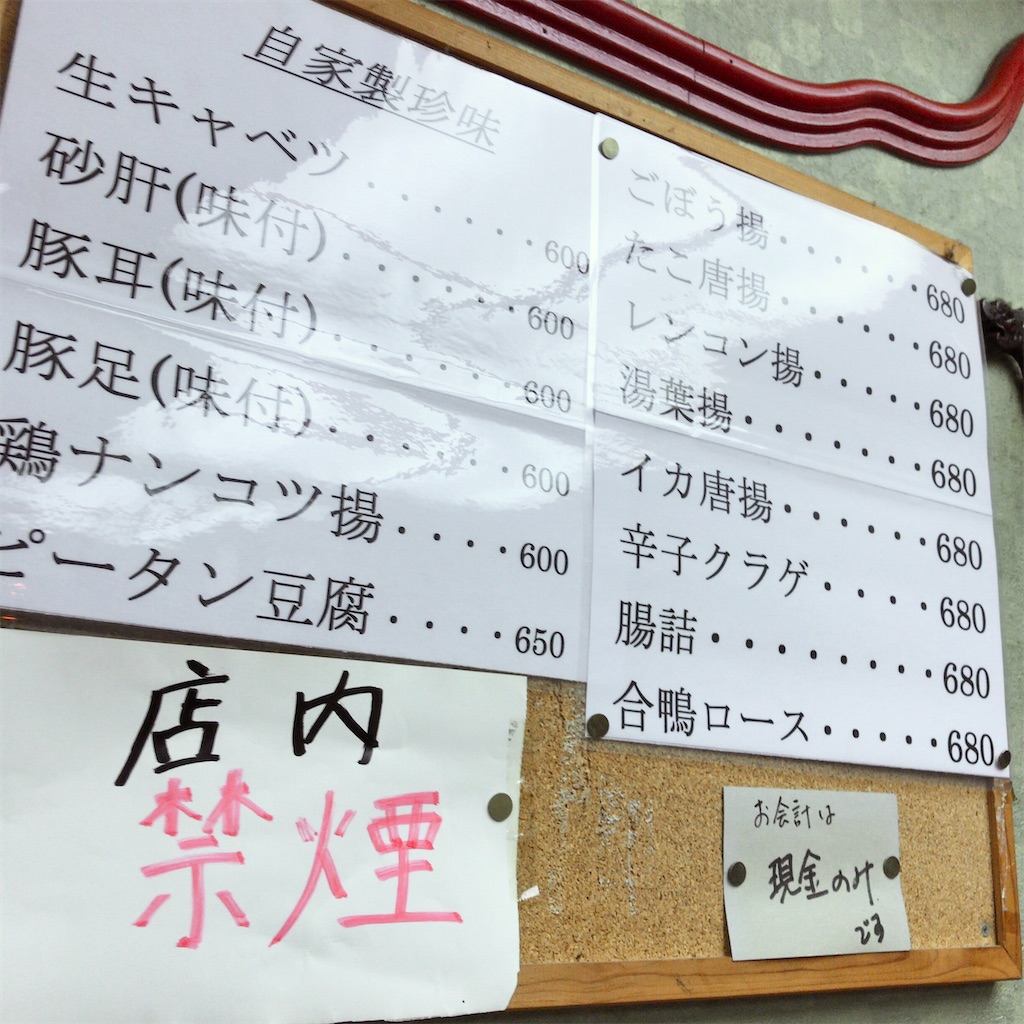 自家製珍味
生キャベツ・・・・・・・600
砂肝(味付)・・・・・・・600
豚耳(味付)・・・・・・・600
豚足(味付)・・・・・・・600
鶏ナンコツ揚・・・・・600
ピータン豆腐・・・・・650
ごぼう揚・・・・・・680
たこ唐揚・・・・・・680
レンコン揚・・・・・680
湯葉揚・・・・・・・680
イカ唐揚・・・・・・680
辛子クラゲ・・・・・680
腸詰・・・・・・・・680
合鴨ロース・・・・・680
店内
禁煙
お会計は
現金のみ
です